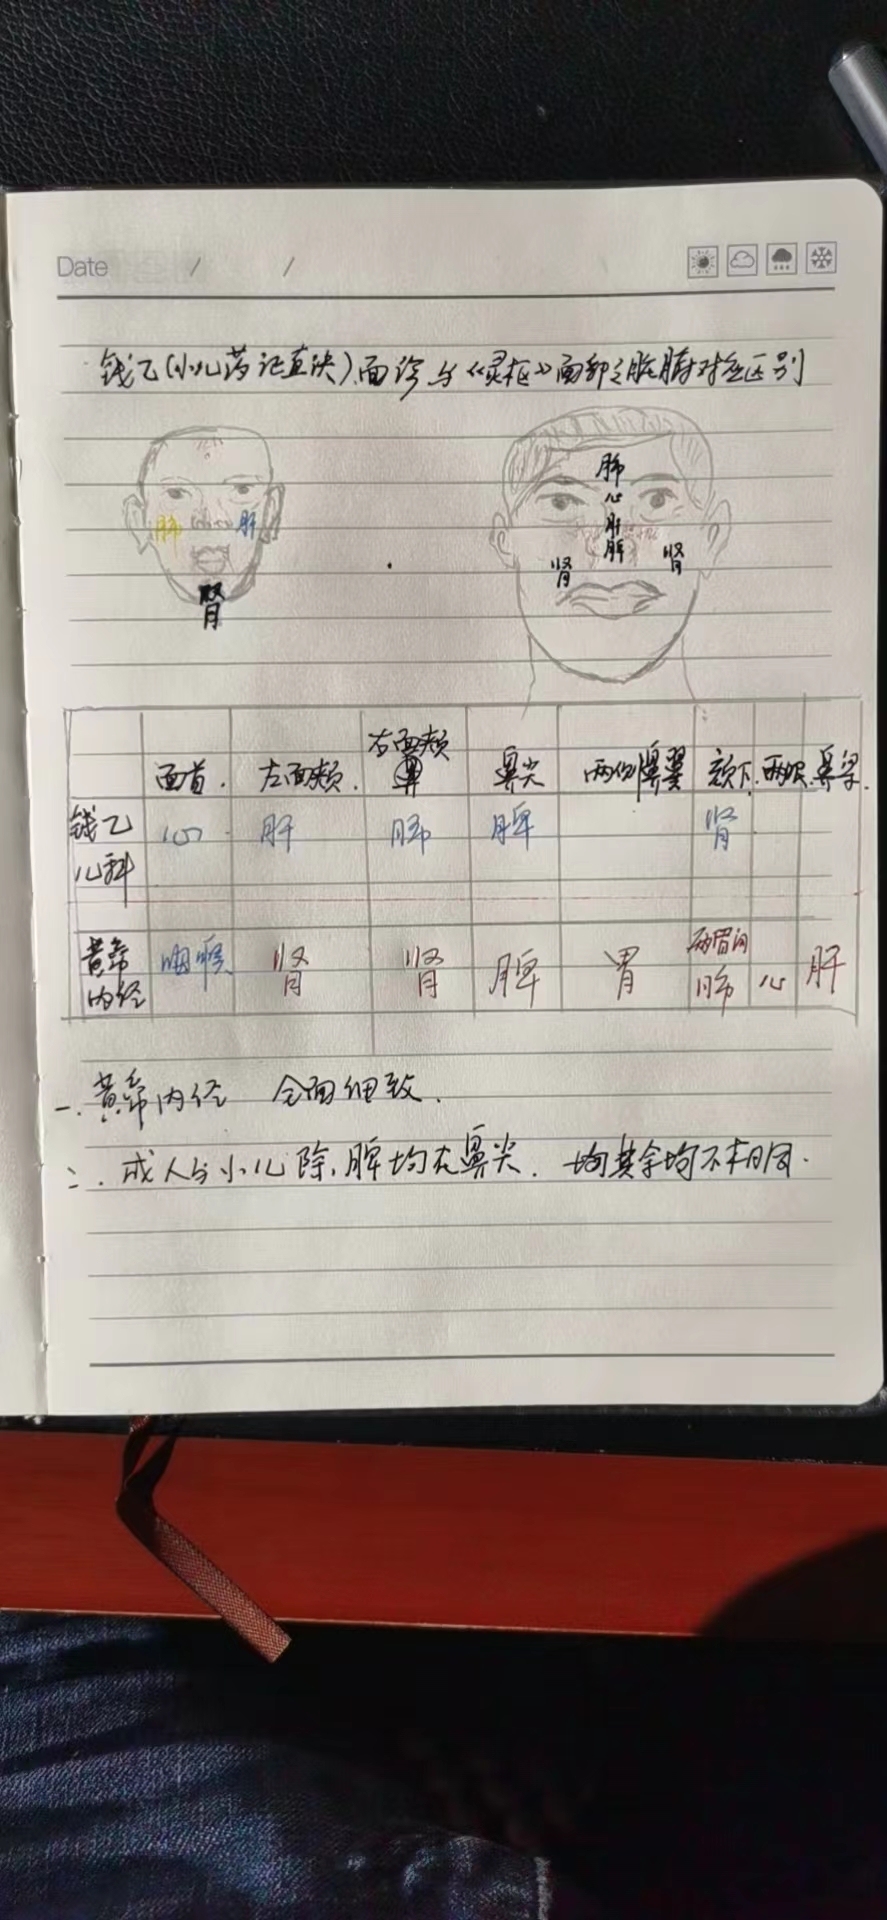 Date / /
钱乙(小儿药证直诀)面诊与《灵枢》面部之脏腑对应区别
肺 肝
肾
肺
心
肝
脾
肾 肾
面首. 左面颊. 右面颊 鼻尖 两侧鼻翼 颏下. 两眼. 鼻梁.
钱乙儿科 心 肝 肺 脾 肾
黄帝内经 咽喉 肾 肾 脾 胃 两眉间 肺 心 肝
一. 黄帝内经 全面细致.
二. 成人与小儿除,脾均在鼻尖. 均其余均不相同.